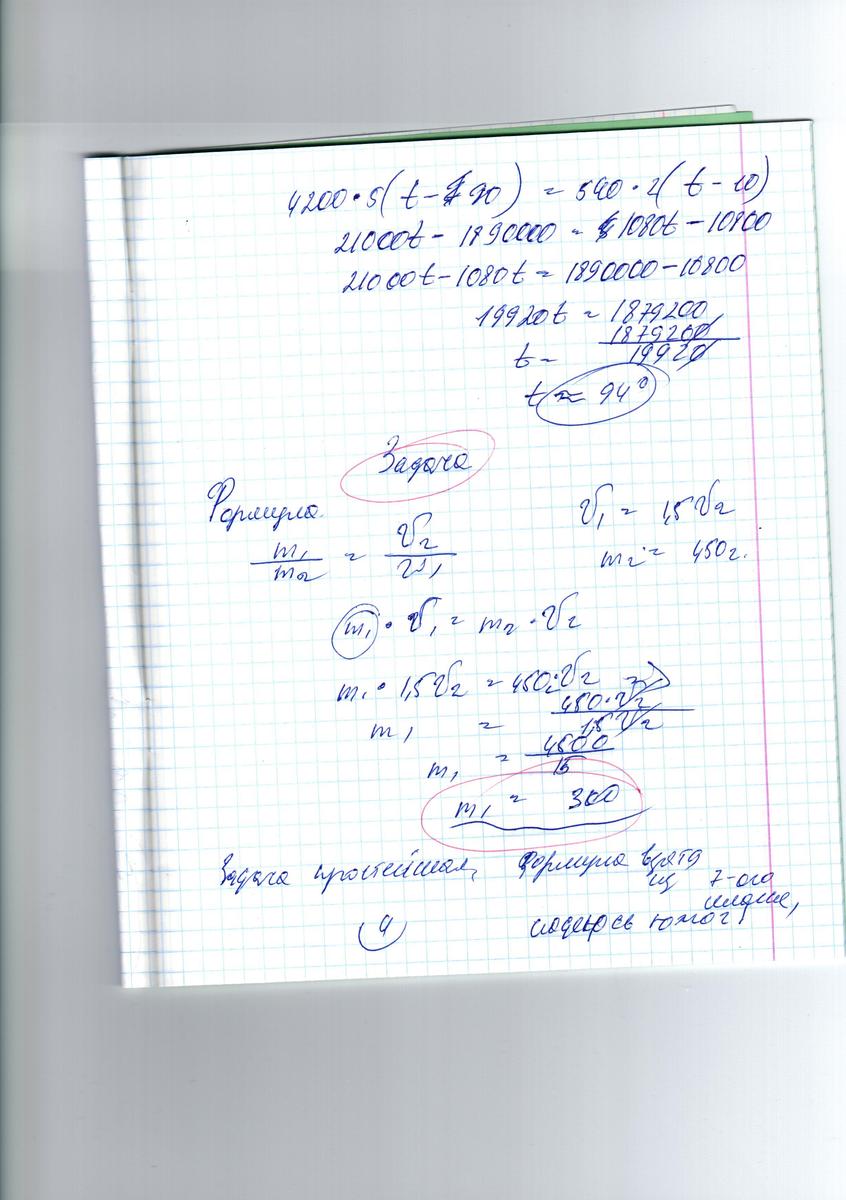 4200·5(t-90) = 540·2(t-10)
21000t - 1890000 = 1080t - 10800
21000t - 1080t = 1890000 - 10800
19920t = 1879200
t = 1879200/19920
t ≈ 94°
Задача
Формула
m₁/m₂ = V₂/V₁
V₁ = 1,5V₂
m₂ = 450г.
m₁·V₁ = m₂·V₂
m₁·1,5V₂ = 450·V₂ =>
m₁ = 450·V₂/1,5V₂
m₁ = 4500/15
m₁ = 300
Задача простейшая, формула взята
из 7-ого
класса,
надеюсь помог!